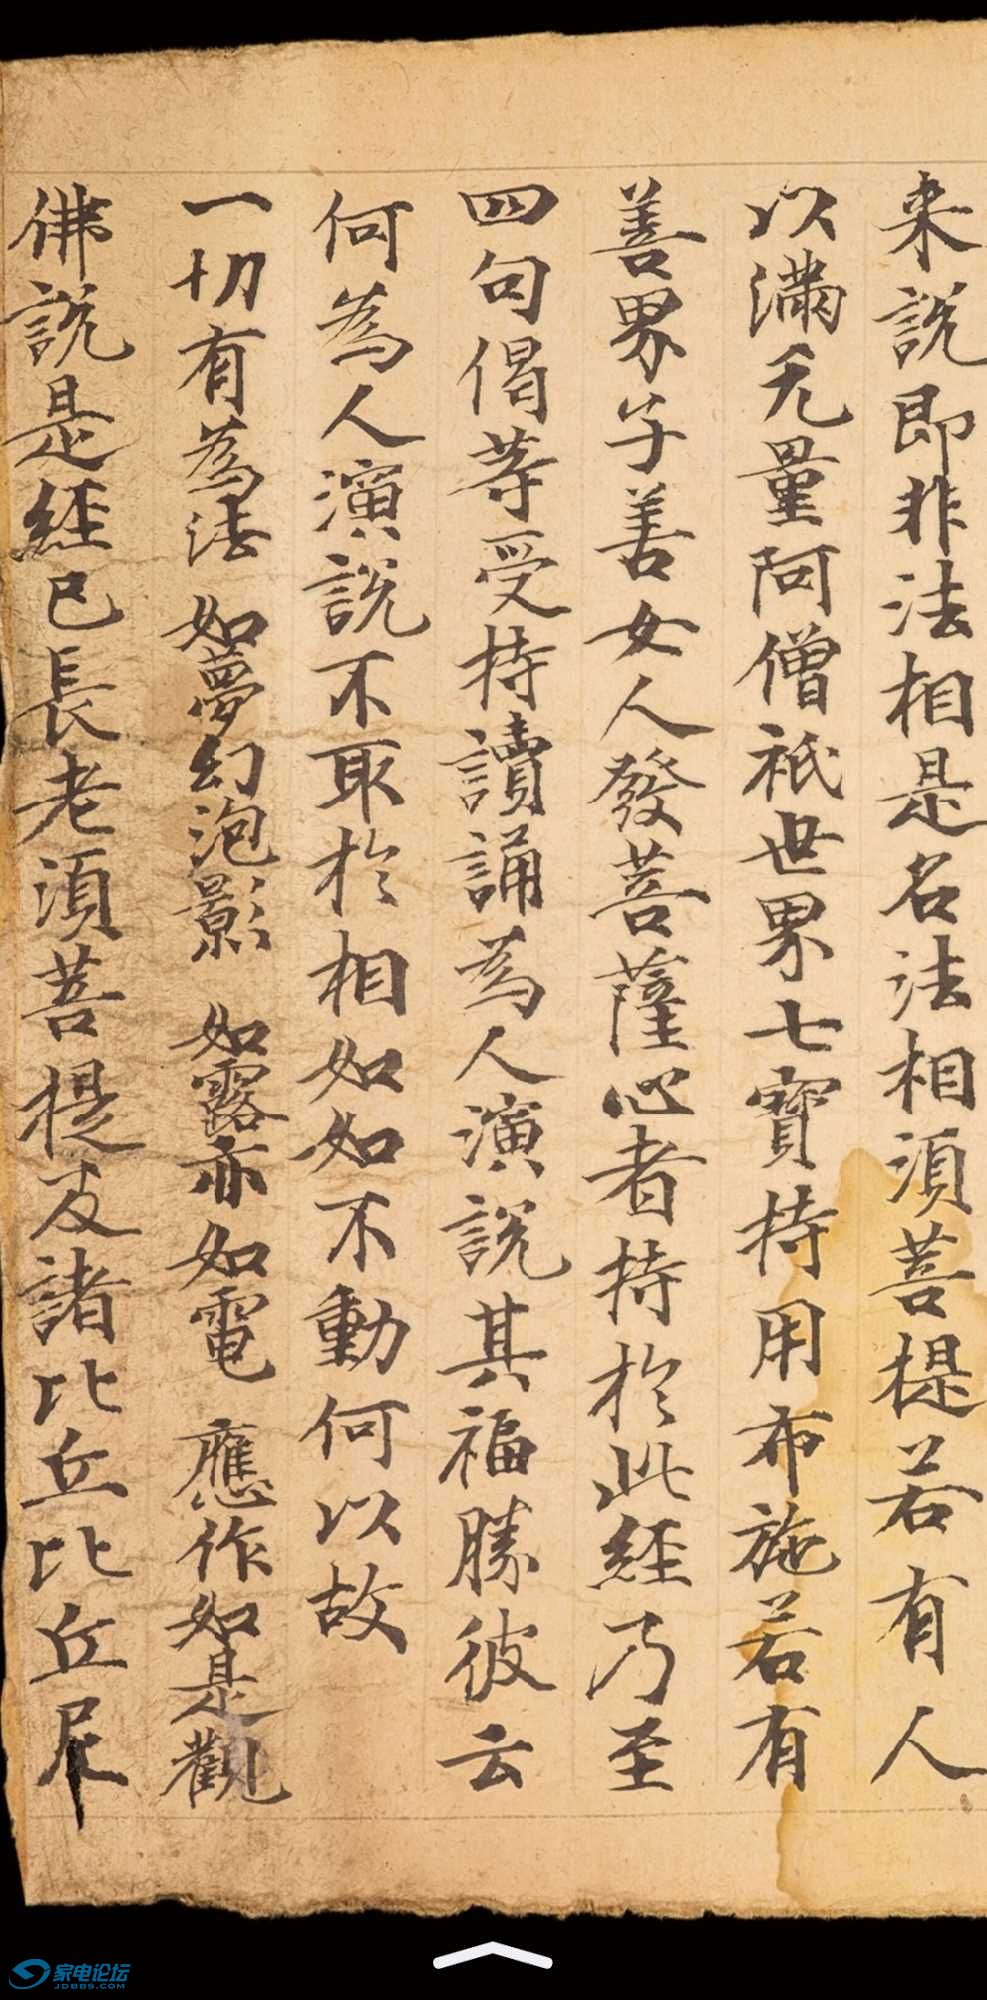 来說即非法相是名法相須菩提若有人
以滿无量阿僧祇世界七寶持用布施若有
善界子善女人發菩薩心者持於此經乃至
四句偈等受持讀誦為人演說其福勝彼云
何為人演說不取於相如如不動何以故
一切有為法 如夢幻泡影 如露亦如電 應作如是觀
佛說是經已長老須菩提及諸比丘比丘尼
家电论坛
JDBBS.COM